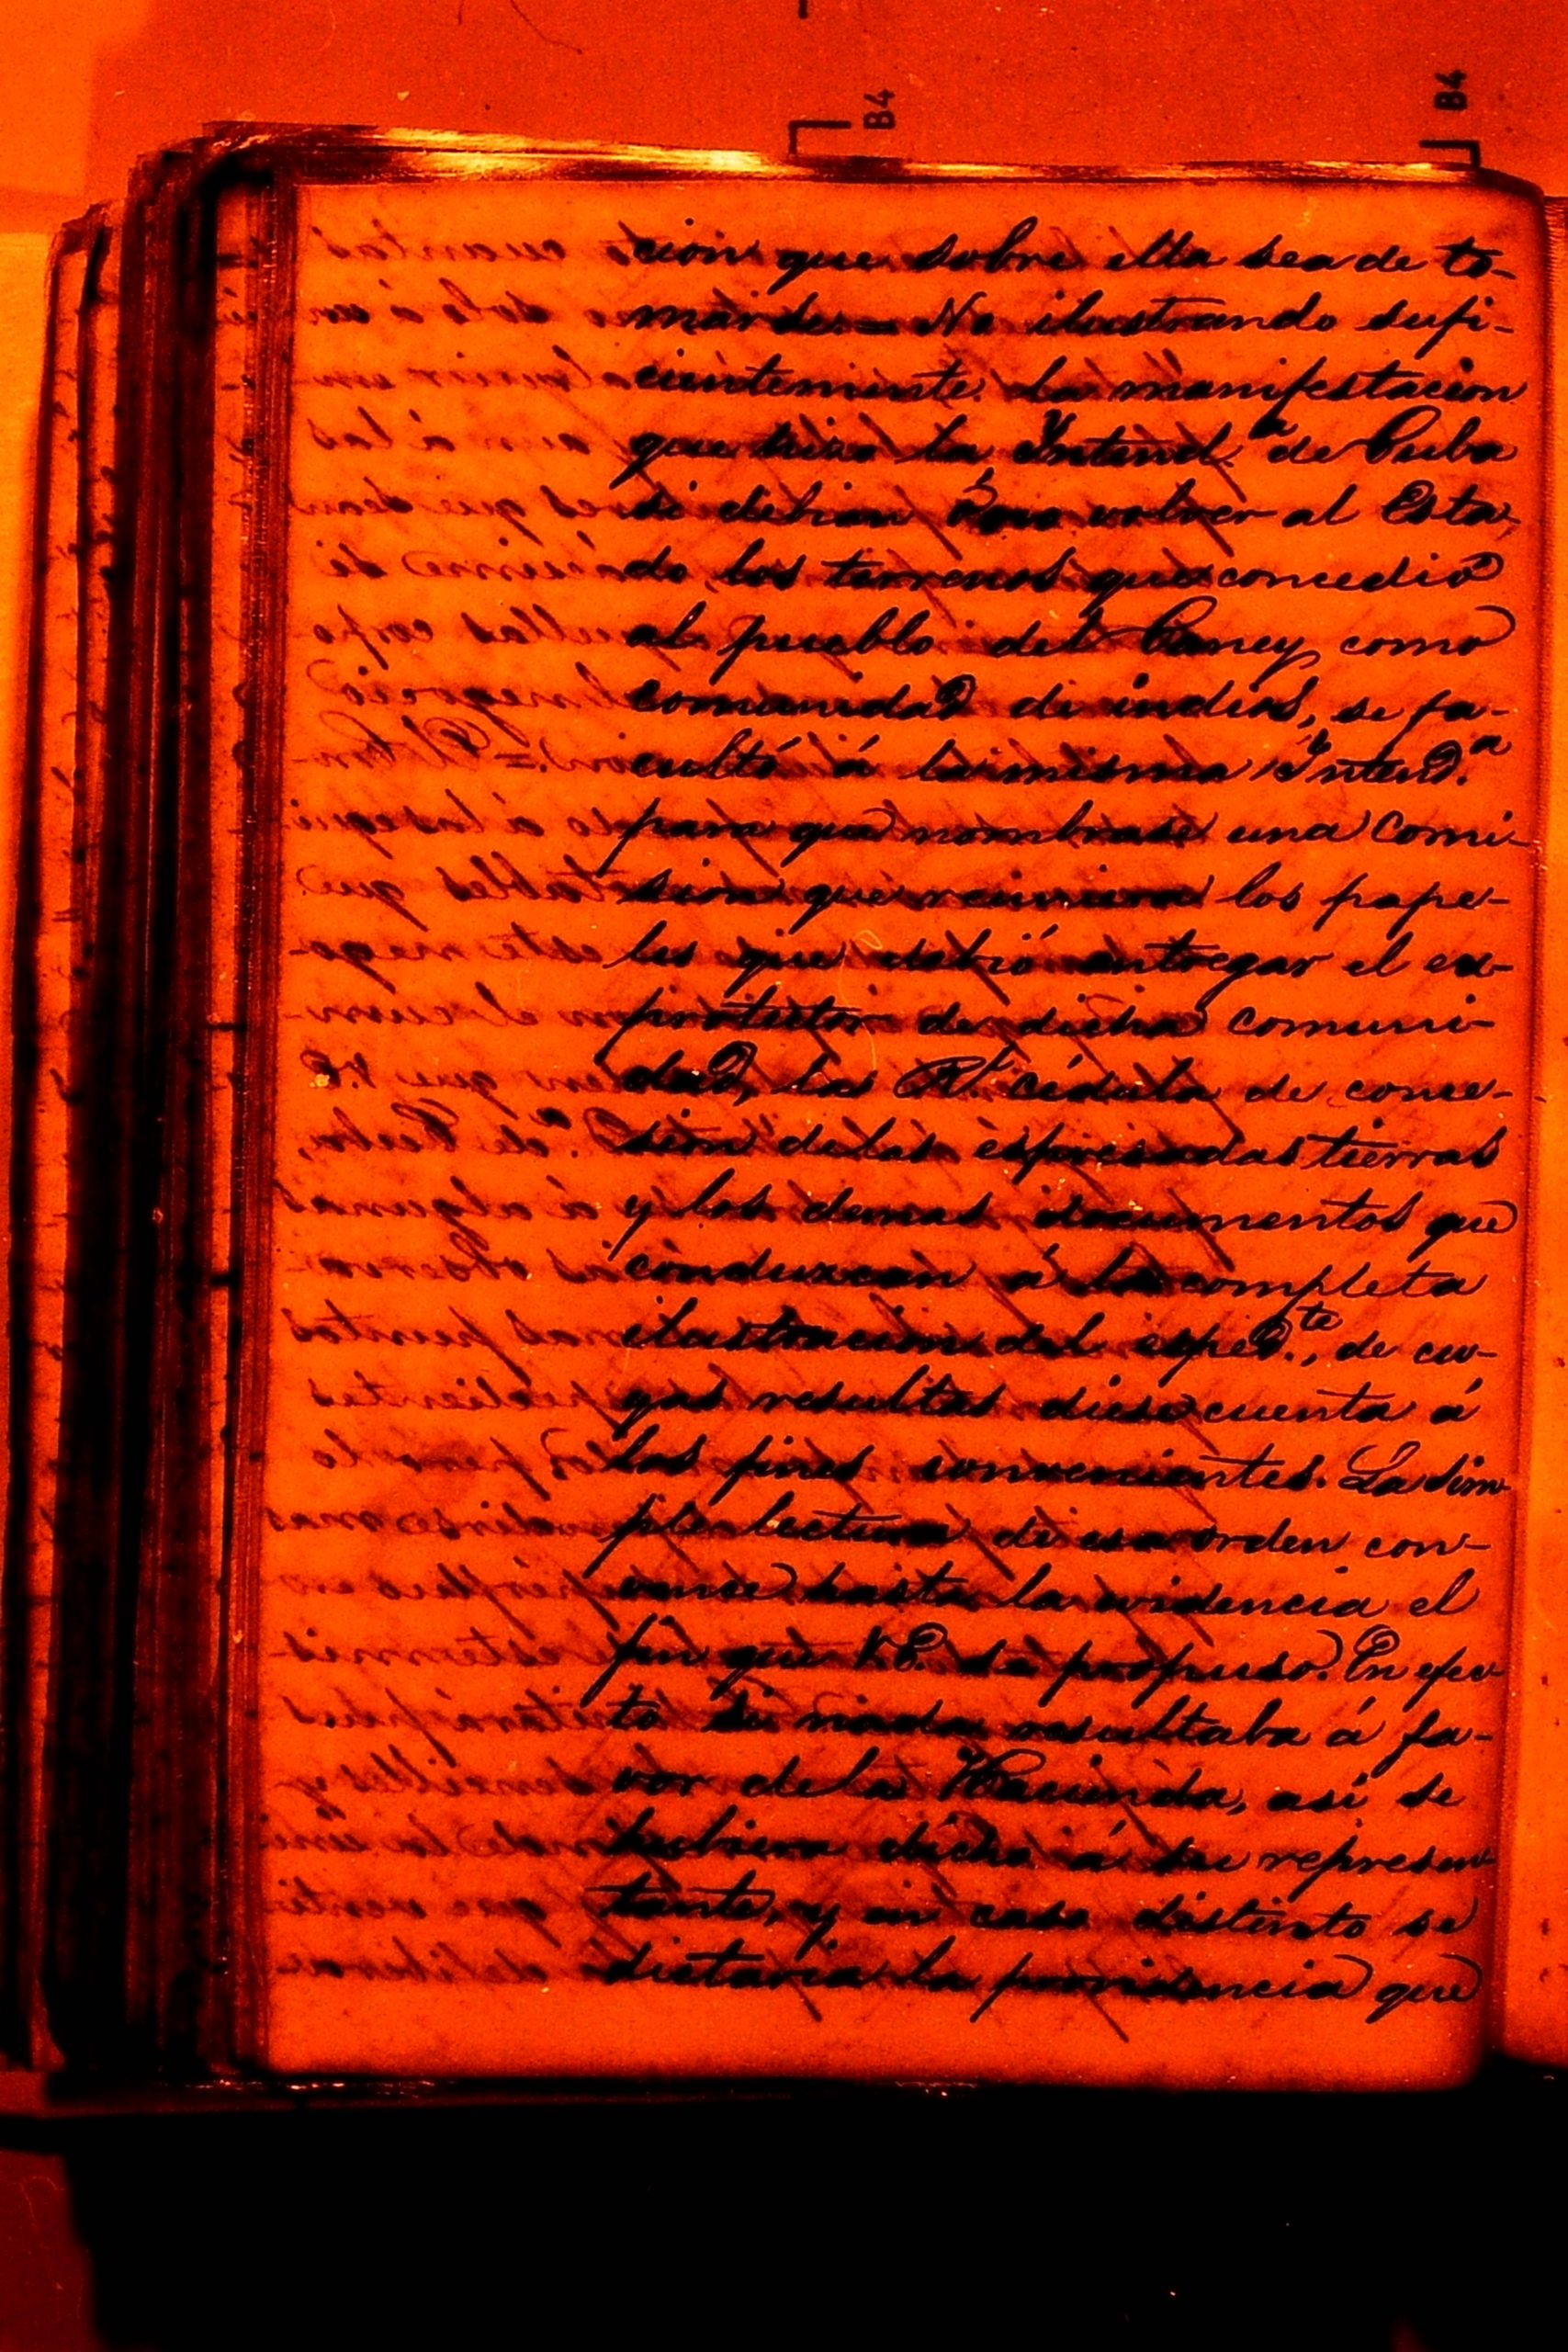 B4
B4
cion que sobre ella sea de to-
marse. = No ilustrando sufi-
cientemente la manifestacion
que hizo la Yntend.ª de Cuba
si debian ó no volver al Esta-
do, los terrenos que concedió
al pueblo del Caney como
comunidad de indios, se fa-
cultó á la misma Yntend.ª
para que nombrase una comi-
sion que reuniera los pape-
les que debió entregar el ex-
protector de dicha comuni-
dad, la R.l cédula de conce-
sion de las espresadas tierras
y los demas documentos que
conduzcan á la completa
ilustracion del exped.te, de cu-
yas resultas diese cuenta á
los fines convenientes. La sim-
ple lectura de esa orden con-
vence hasta la evidencia el
fin que V.E. se propuso. En efec-
to si nada resultaba á fa-
vor de la Hacienda, asi se
hubiera dicho á su represen-
tante, y en caso distinto se
dictaria la providencia que